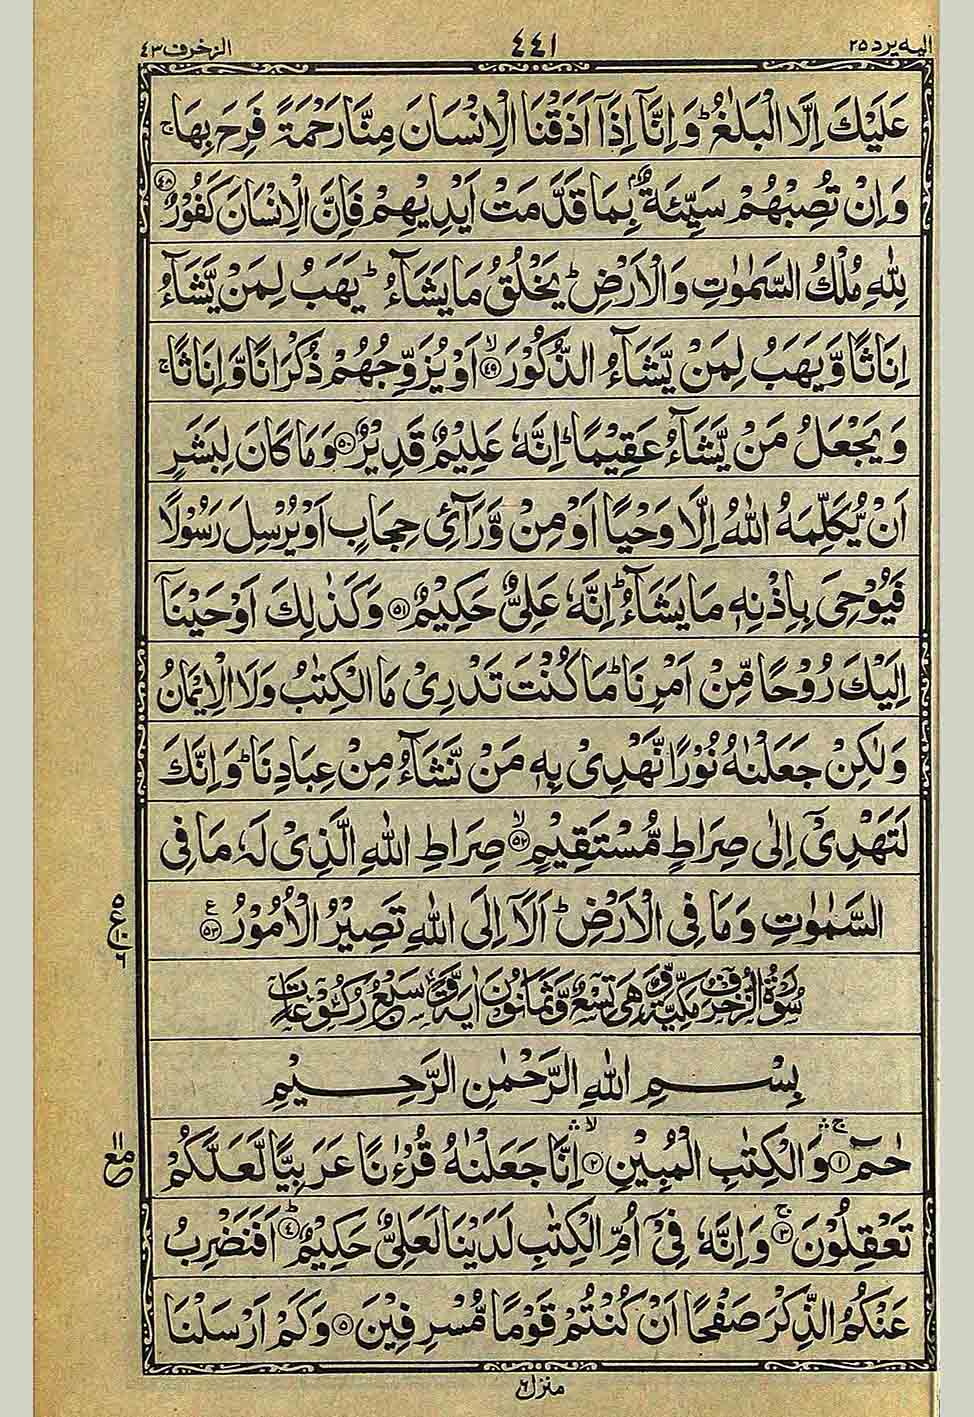 اليه يرد ٢٥ ٤٤١ الزخرف ٤٣
عَلَيْكَ اِلَّا الْبَلٰغُ ؕ وَ اِنَّاۤ اِذَاۤ اَذَقْنَا الْاِنْسَانَ مِنَّا رَحْمَةً فَرِحَ بِهَا ۚ
وَ اِنْ تُصِبْهُمْ سَيِّئَةٌۢ بِمَا قَدَّمَتْ اَيْدِيْهِمْ فَاِنَّ الْاِنْسَانَ كَفُوْرٌ ﴿٤٨﴾
لِلّٰهِ مُلْكُ السَّمٰوٰتِ وَ الْاَرْضِ ؕ يَخْلُقُ مَا يَشَآءُ ؕ يَهَبُ لِمَنْ يَّشَآءُ
اِنَاثًا وَّ يَهَبُ لِمَنْ يَّشَآءُ الذُّكُوْرَ ۙ﴿٤٩﴾ اَوْ يُزَوِّجُهُمْ ذُكْرَانًا وَّ اِنَاثًا ۚ
وَ يَجْعَلُ مَنْ يَّشَآءُ عَقِيْمًا ؕ اِنَّهٗ عَلِيْمٌ قَدِيْرٌ ﴿٥٠﴾ وَ مَا كَانَ لِبَشَرٍ
اَنْ يُّكَلِّمَهُ اللّٰهُ اِلَّا وَحْيًا اَوْ مِنْ وَّرَآئِ حِجَابٍ اَوْ يُرْسِلَ رَسُوْلًا
فَيُوْحِيَ بِاِذْنِهٖ مَا يَشَآءُ ؕ اِنَّهٗ عَلِيٌّ حَكِيْمٌ ﴿٥١﴾ وَ كَذٰلِكَ اَوْحَيْنَاۤ
اِلَيْكَ رُوْحًا مِّنْ اَمْرِنَا ؕ مَا كُنْتَ تَدْرِيْ مَا الْكِتٰبُ وَ لَا الْاِيْمَانُ
وَ لٰكِنْ جَعَلْنٰهُ نُوْرًا نَّهْدِيْ بِهٖ مَنْ نَّشَآءُ مِنْ عِبَادِنَا ؕ وَ اِنَّكَ
لَتَهْدِيْۤ اِلٰى صِرَاطٍ مُّسْتَقِيْمٍ ۙ﴿٥٢﴾ صِرَاطِ اللّٰهِ الَّذِيْ لَهٗ مَا فِي
السَّمٰوٰتِ وَ مَا فِي الْاَرْضِ ؕ اَلَاۤ اِلَى اللّٰهِ تَصِيْرُ الْاُمُوْرُ ﴿٥٣﴾ ع
٥
ع
١٠
٦
سُوْرَةُ الزُّخْرُفِ مَكِّيَّةٌ وَّ هِيَ تِسْعٌ وَّ ثَمَانُوْنَ اٰيَةً وَّ سَبْعُ رُكُوْعَاتٍ
بِسْمِ اللّٰهِ الرَّحْمٰنِ الرَّحِيْمِ
حٰمٓ ﴿١﴾ وَ الْكِتٰبِ الْمُبِيْنِ ۙ﴿٢﴾ اِنَّا جَعَلْنٰهُ قُرْءٰنًا عَرَبِيًّا لَّعَلَّكُمْ
تَعْقِلُوْنَ ۚ﴿٣﴾ وَ اِنَّهٗ فِيْۤ اُمِّ الْكِتٰبِ لَدَيْنَا لَعَلِيٌّ حَكِيْمٌ ؕ﴿٤﴾ اَفَنَضْرِبُ
عَنْكُمُ الذِّكْرَ صَفْحًا اَنْ كُنْتُمْ قَوْمًا مُّسْرِفِيْنَ ﴿٥﴾ وَ كَمْ اَرْسَلْنَا
منزل ٦